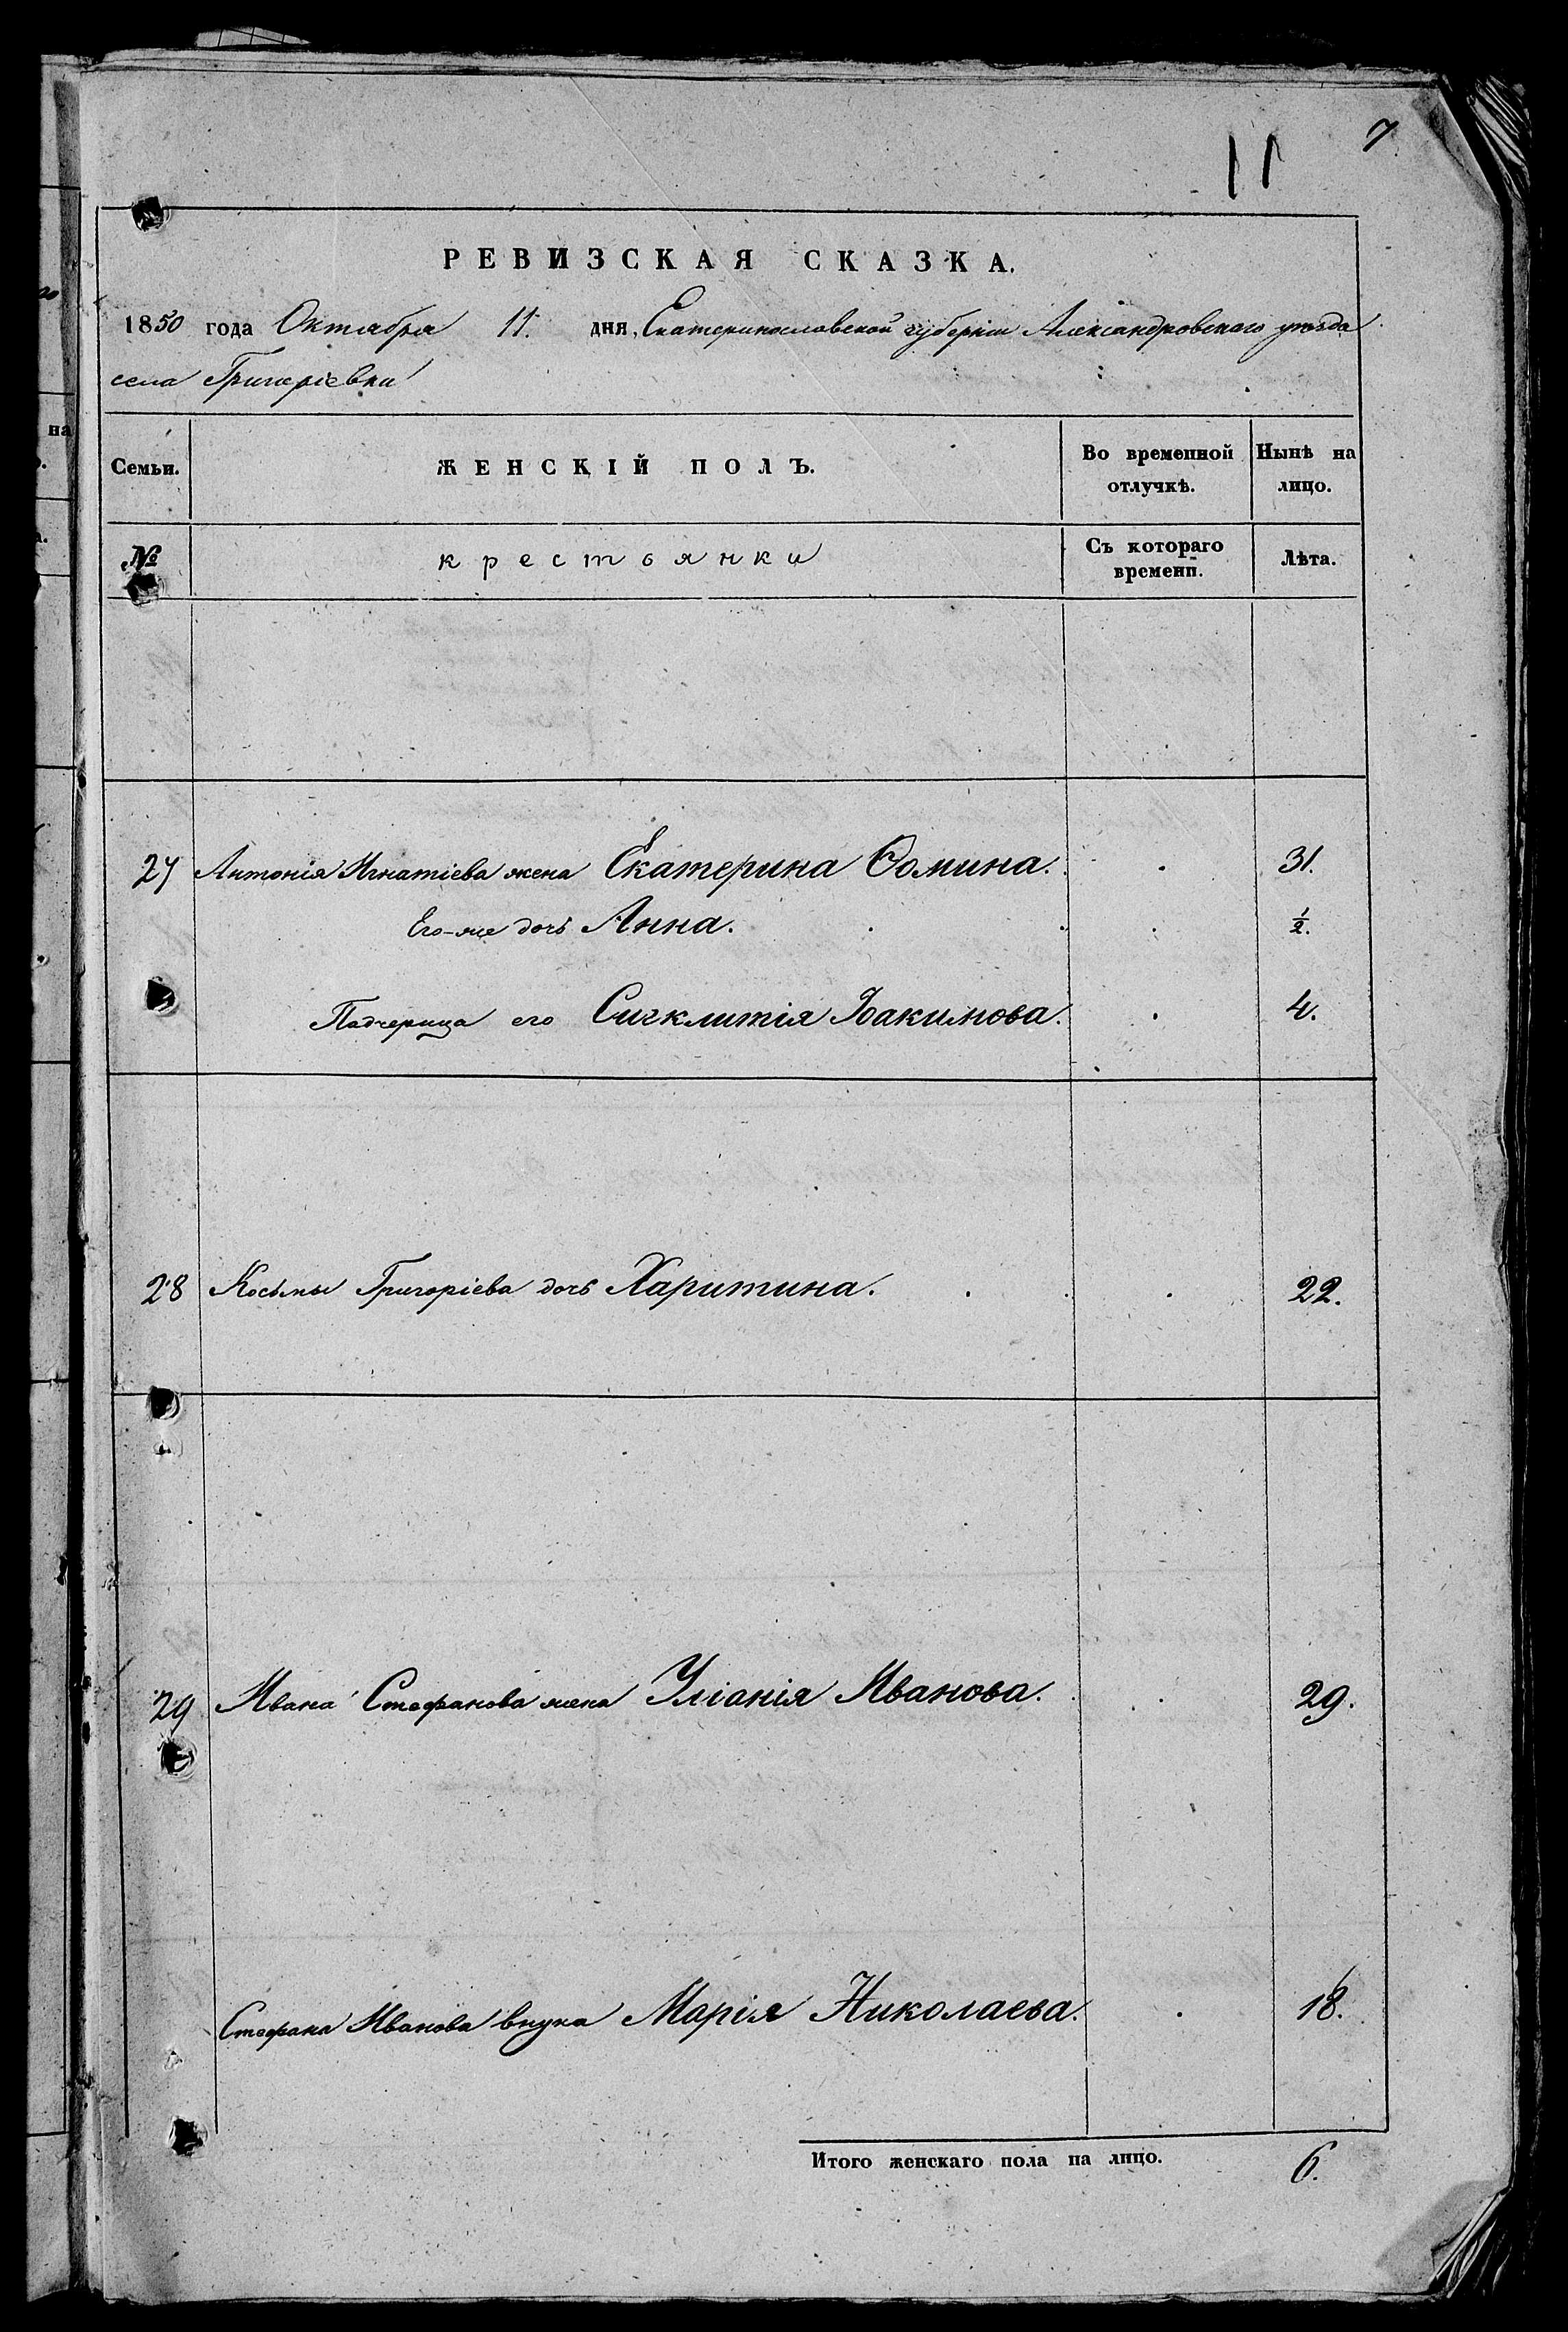 11 7
РЕВИЗСКАЯ СКАЗКА.
1850 года Октября 11. дня, Екатеринославской губерніи Александровскаго уѣзда
села Григоріевки
Семьи. ЖЕНСКІЙ ПОЛЪ. Во временной отлучкѣ. Нынѣ на лицо.
№ крестьянки Съ котораго времени. Лѣта.
27 Антонія Игнатіева жена Екатерина Ѳомина. 31.
Его-же дочь Анна. 1/2.
Падчерица его Сигклитія Іоакимова. 4.
28 Косьмы Григоріева дочь Харитина. 22.
29 Ивана Стефанова жена Уліанія Иванова. 29.
Стефана Иванова внука Марія Николаева. 18.
Итого женскаго пола на лицо. 6.